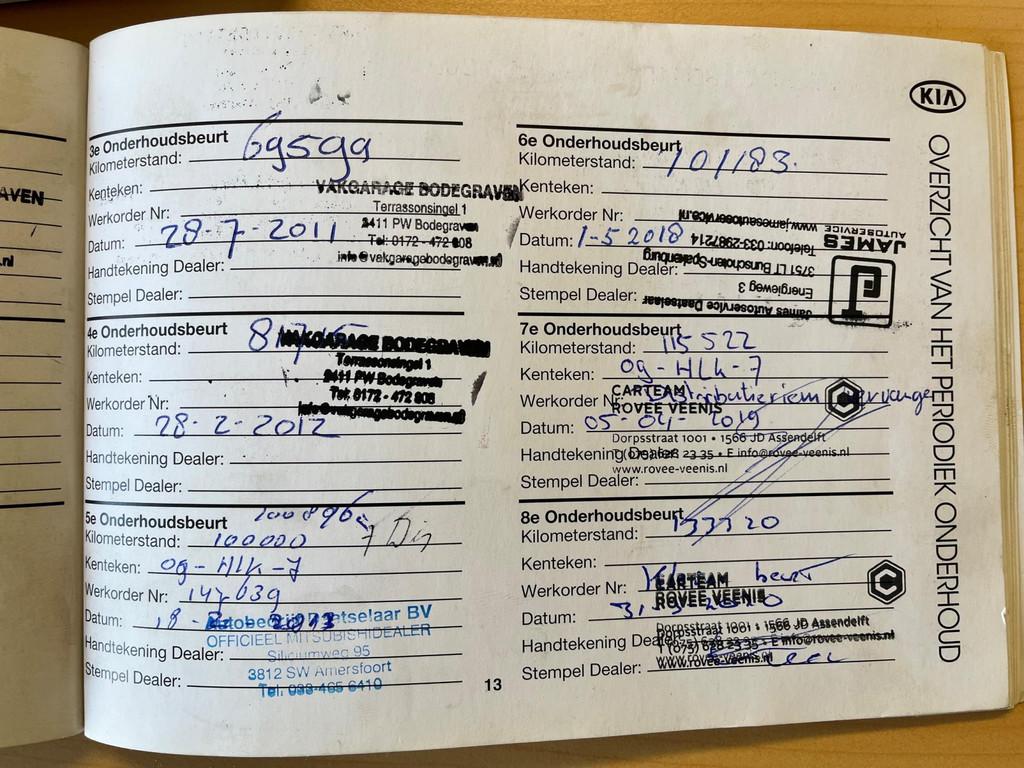 AVEN
.nl
3e Onderhoudsbeurt
Kilometerstand: 69599
Kenteken:
VAKGARAGE BODEGRAVEN
Terrassonsingel 1
Werkorder Nr:
2411 PW Bodegraven
Datum: 28-7-2011
Tel: 0172-472 808
Handtekening Dealer:
info@vakgaragebodegraven.nl
Stempel Dealer:
4e Onderhoudsbeurt
Kilometerstand:
VAKGARAGE BODEGRAVEN
Terrassonsingel 1
Kenteken:
2411 PW Bodegraven
Werkorder Nr:
Tel: 0172-472 808
info@vakgaragebodegraven.nl
Datum: 28-2-2012
Handtekening Dealer:
Stempel Dealer:
5e Onderhoudsbeurt
Kilometerstand: 100000
Kenteken: 09-HLK-7
Werkorder Nr: 147039
Datum:
Autobedrijf Daatselaar BV
OFFICIEEL MITSUBISHIDEALER
Handtekening Dealer:
Siliciumweg 95
3812 SW Amersfoort
Stempel Dealer:
Tel. 033-465 6410
13
6e Onderhoudsbeurt
Kilometerstand: 101183.
Kenteken:
Werkorder Nr:
www.jamesautoservice.nl
Datum: 1-5 2018
Telefoon: 033-2987214
JAMES
AUTOSERVICE
Handtekening Dealer:
3751 LT Bunschoten-Spakenburg
Energieweg 3
Stempel Dealer:
James Autoservice Daatselaar
7e Onderhoudsbeurt
Kilometerstand: 115522
Kenteken: 09-HLK-7
CARTEAM
Werkorder Nr: Distributieriem vervangen
ROVEE VEENIS
Datum: 05-04-2019
Dorpsstraat 1001 • 1566 JD Assendelft
Handtekening Dealer:
T (075) 628 23 35 • E info@rovee-veenis.nl
www.rovee-veenis.nl
Stempel Dealer:
8e Onderhoudsbeurt
Kilometerstand: 133320
Kenteken:
Werkorder Nr: beurt
CARTEAM
ROVEE VEENIS
Datum:
Dorpsstraat 1001 • 1566 JD Assendelft
Handtekening Dealer:
T (075) 628 23 35 • E info@rovee-veenis.nl
Stempel Dealer:
www.rovee-veenis.nl
KIA
OVERZICHT VAN HET PERIODIEK ONDERHOUD